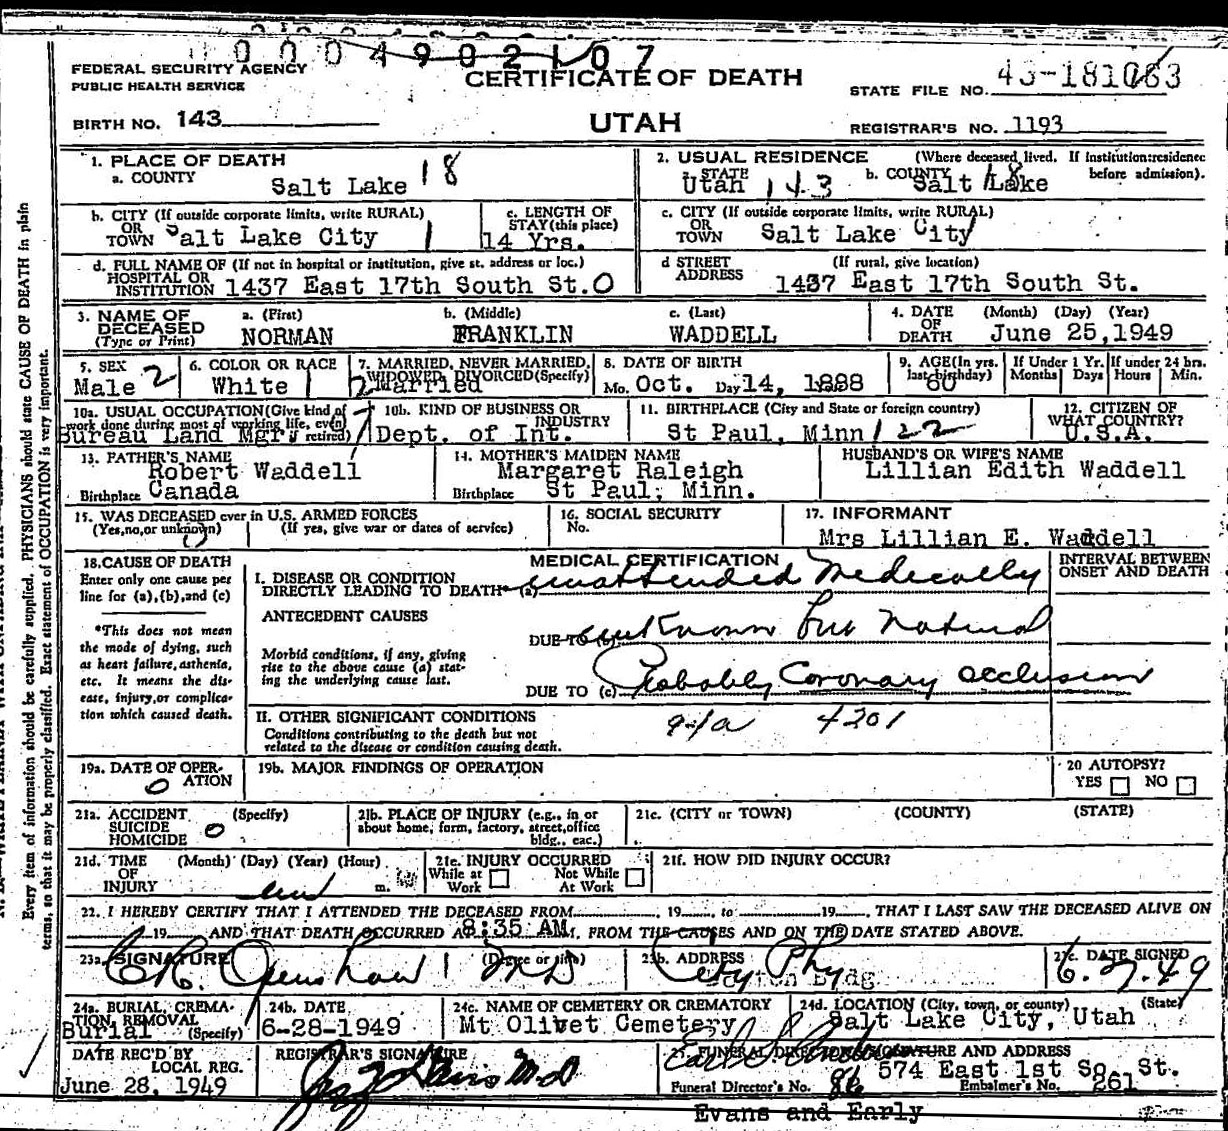 0004902107
FEDERAL SECURITY AGENCY
PUBLIC HEALTH SERVICE
CERTIFICATE OF DEATH
STATE FILE NO.
BIRTH NO. 143
UTAH
REGISTRAR'S NO. 1193
1. PLACE OF DEATH
a. COUNTY Salt Lake 18
2. USUAL RESIDENCE (Where deceased lived. If institution: residence before admission).
a. STATE Utah 143 b. COUNTY Salt Lake 18
b. CITY (If outside corporate limits, write RURAL)
OR TOWN Salt Lake City 1
c. LENGTH OF STAY (this place)
14 Yrs.
c. CITY (If outside corporate limits, write RURAL)
OR TOWN Salt Lake City
d. FULL NAME OF (If not in hospital or institution, give st. address or loc.)
HOSPITAL OR INSTITUTION 1437 East 17th South St. 0
d STREET ADDRESS (If rural, give location)
1437 East 17th South St.
3. NAME OF DECEASED (Type or Print)
a. (First) b. (Middle) c. (Last)
NORMAN FRANKLIN WADDELL
4. DATE OF DEATH (Month) (Day) (Year)
June 25, 1949
5. SEX
Male 2
6. COLOR OR RACE
White 1
7. MARRIED, NEVER MARRIED, WIDOWED, DIVORCED (Specify)
2 Married
8. DATE OF BIRTH
Mo. Oct. Day 14, 1888
9. AGE (In yrs. last birthday)
60
If Under 1 Yr. Months Days
If under 24 hrs. Hours Min.
10a. USUAL OCCUPATION (Give kind of work done during most of working life, even if retired)
Bureau Land Mgr
10b. KIND OF BUSINESS OR INDUSTRY
Dept. of Int.
11. BIRTHPLACE (City and State or foreign country)
St Paul, Minn 122
12. CITIZEN OF WHAT COUNTRY?
U.S.A.
13. FATHER'S NAME
Robert Waddell
Birthplace Canada
14. MOTHER'S MAIDEN NAME
Margaret Raleigh
Birthplace St Paul, Minn.
HUSBAND'S OR WIFE'S NAME
Lillian Edith Waddell
15. WAS DECEASED ever in U.S. ARMED FORCES
(Yes, no, or unknown) (If yes, give war or dates of service)
16. SOCIAL SECURITY No.
17. INFORMANT
Mrs Lillian E. Waddell
18. CAUSE OF DEATH
Enter only one cause per line for (a), (b), and (c)
*This does not mean the mode of dying, such as heart failure, asthenia, etc. It means the disease, injury, or complication which caused death.
MEDICAL CERTIFICATION
INTERVAL BETWEEN ONSET AND DEATH
I. DISEASE OR CONDITION DIRECTLY LEADING TO DEATH* (a) unattended Medically
ANTECEDENT CAUSES
DUE TO (b) unknown but natural
Morbid conditions, if any, giving rise to the above cause (a) stating the underlying cause last.
DUE TO (c) Probably Coronary occlusion
II. OTHER SIGNIFICANT CONDITIONS
Conditions contributing to the death but not related to the disease or condition causing death.
4201
19a. DATE OF OPERATION
0
19b. MAJOR FINDINGS OF OPERATION
20 AUTOPSY?
YES NO
21a. ACCIDENT SUICIDE HOMICIDE (Specify)
0
21b. PLACE OF INJURY (e.g., in or about home, farm, factory, street, office bldg., eac.)
21c. (CITY or TOWN) (COUNTY) (STATE)
21d. TIME OF INJURY (Month) (Day) (Year) (Hour) m.
21e. INJURY OCCURRED
While at Work Not While At Work
21f. HOW DID INJURY OCCUR?
22. I HEREBY CERTIFY THAT I ATTENDED THE DECEASED FROM , 19 , to 19 , THAT I LAST SAW THE DECEASED ALIVE ON
19 AND THAT DEATH OCCURRED AT 8:35 AM, FROM THE CAUSES AND ON THE DATE STATED ABOVE.
23a. SIGNATURE (Degree or title)
C R. Openshaw MD
23b. ADDRESS
City Phy
Bldg
23c. DATE SIGNED
24a. BURIAL, CREMATION, REMOVAL (Specify)
Burial
24b. DATE
6-28-1949
24c. NAME OF CEMETERY OR CREMATORY
Mt Olivet Cemetery
24d. LOCATION (City, town, or county) (State)
Salt Lake City, Utah
DATE REC'D BY LOCAL REG.
June 28, 1949
REGISTRAR'S SIGNATURE
25. FUNERAL DIRECTOR'S SIGNATURE AND ADDRESS
574 East 1st So. St.
Funeral Director's No. 86 Embalmer's No. 261
Evans and Early
Every item of information should be carefully supplied. PHYSICIANS should state CAUSE OF DEATH in plain
terms, so that it may be properly classified. Exact statement of OCCUPATION is very important.